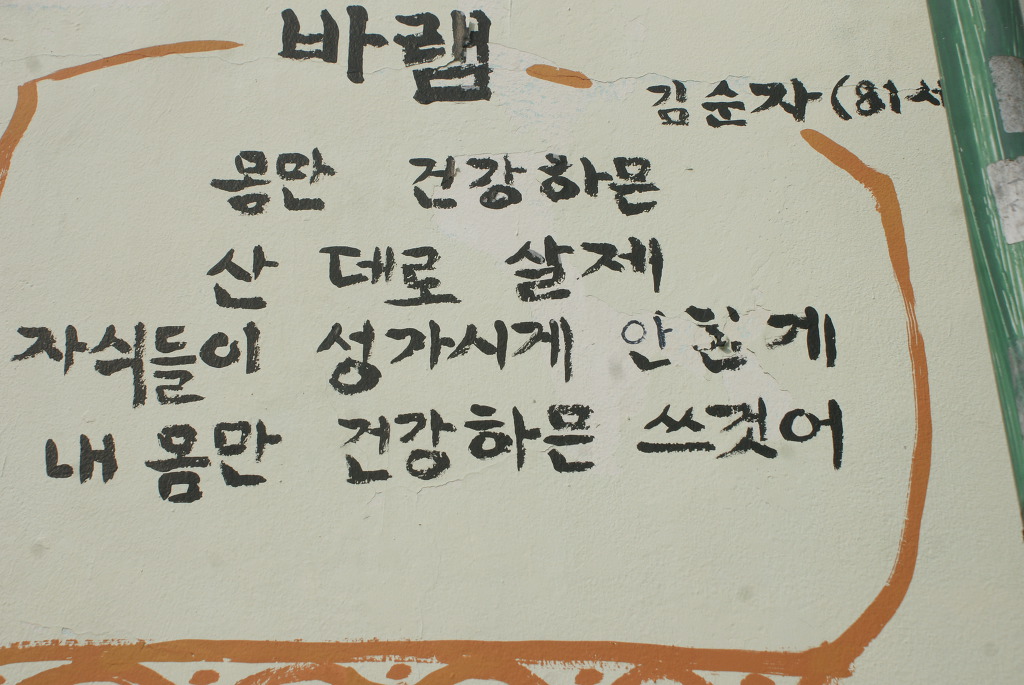 바램
김순자(81세
몸만 건강하믄
산 데로 살제
자식들이 성가시게 안헌게
내 몸만 건강하믄 쓰것어